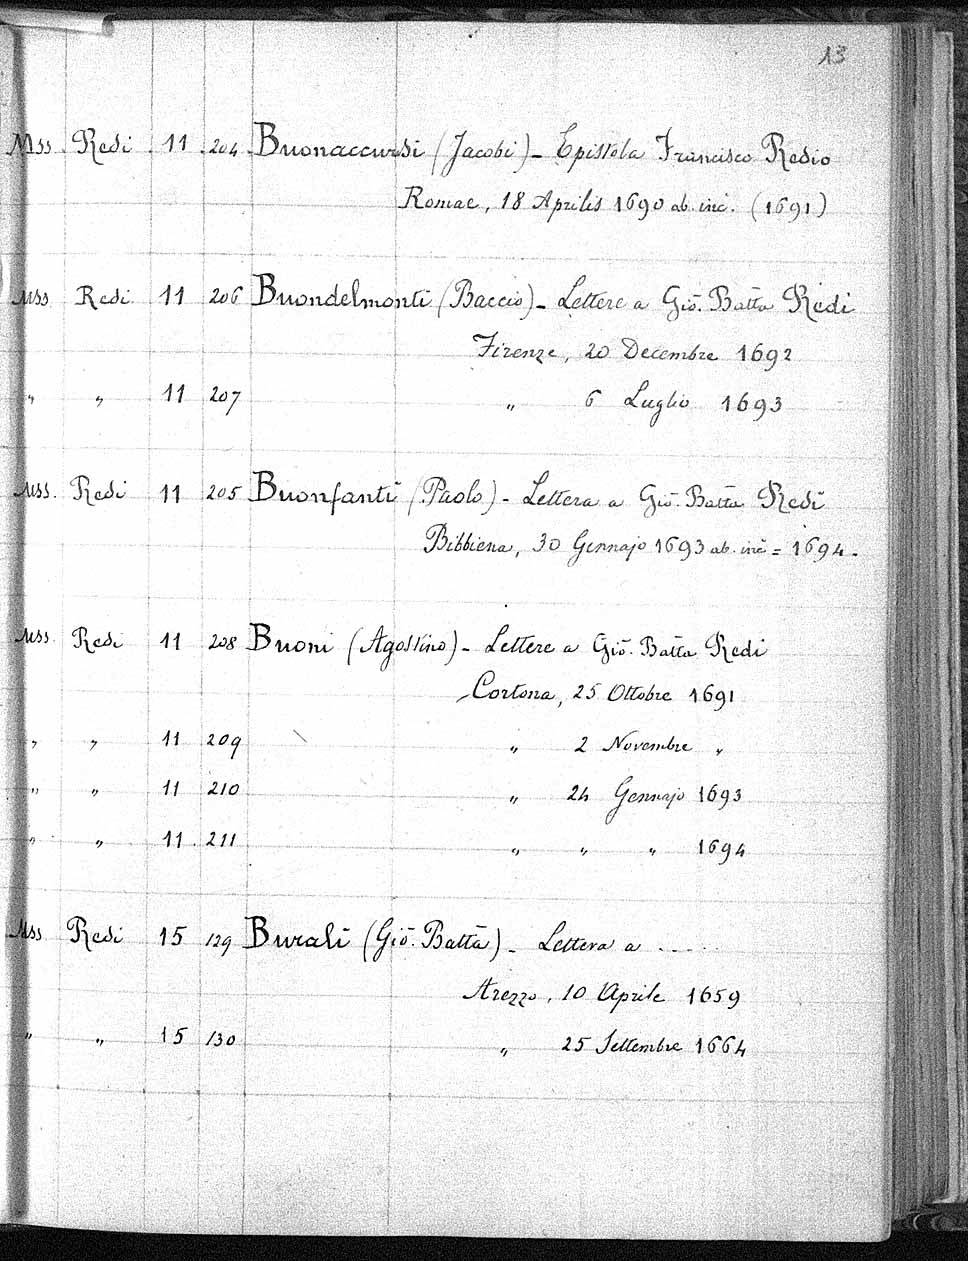 13
Mss Redi 11 204 Buonaccursi (Jacobi) - Epistola Francisco Redio
Romae, 18 Aprilis 1690 ab. inc. (1691)
Mss Redi 11 206 Buondelmonti (Baccio) - Lettere a Gio. Batta Redi
Firenze, 20 Decembre 1692
" " 11 207 " 6 Luglio 1693
Mss. Redi 11 205 Buonfanti (Paolo) - Lettera a Gio. Batta Redi
Bibbiena, 30 Gennajo 1693 ab. inc = 1694 -
Mss Redi 11 208 Buoni (Agostino) - Lettere a Gio. Batta Redi
Cortona, 25 Ottobre 1691
" " 11 209 " 2 Novembre "
" " 11 210 " 24 Gennajo 1693
" " 11 211 " " " 1694
Mss Redi 15 129 Burali (Gio. Batta) - Lettera a .....
Arezzo, 10 Aprile 1659
" " 15 130 " 25 Settembre 1664